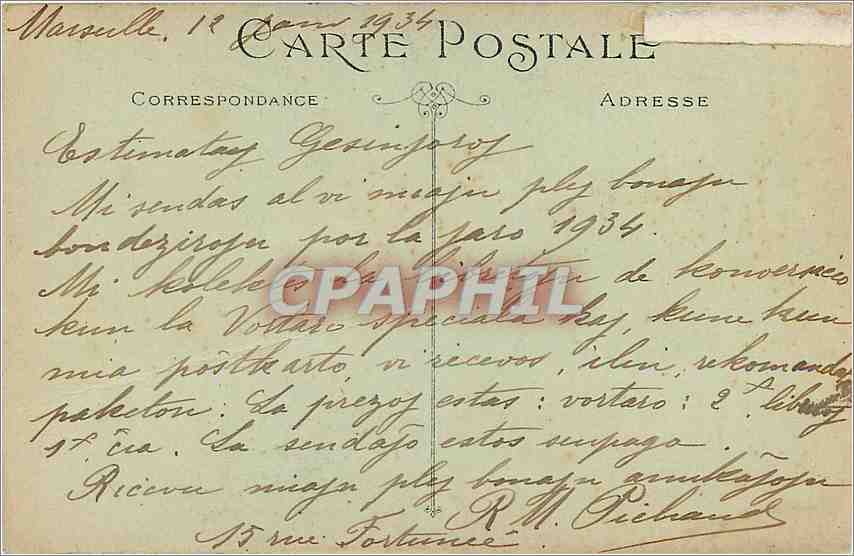 Marseille, 12 janv 1934
CARTE POSTALE
CORRESPONDANCE
ADRESSE
Estimataj Gesinjoroj
Mi sendas al vi miajn plej bonajn
bondezirojn por la jaro 1934.
Mi kolektis la libreton de konversacio
CPAPHIL
kun la Vortaro speciala kaj, kune kun
mia postkarto, vi ricevos, ilin, rekomandan
paketon. La prezoj estas: vortaro: 2x. libretoj
1x. ĉia. La sendaĵo estos senpaga.
Ricevu miajn plej bonajn amikaĵojn
R M. Pichaud
15 rue Fortunée